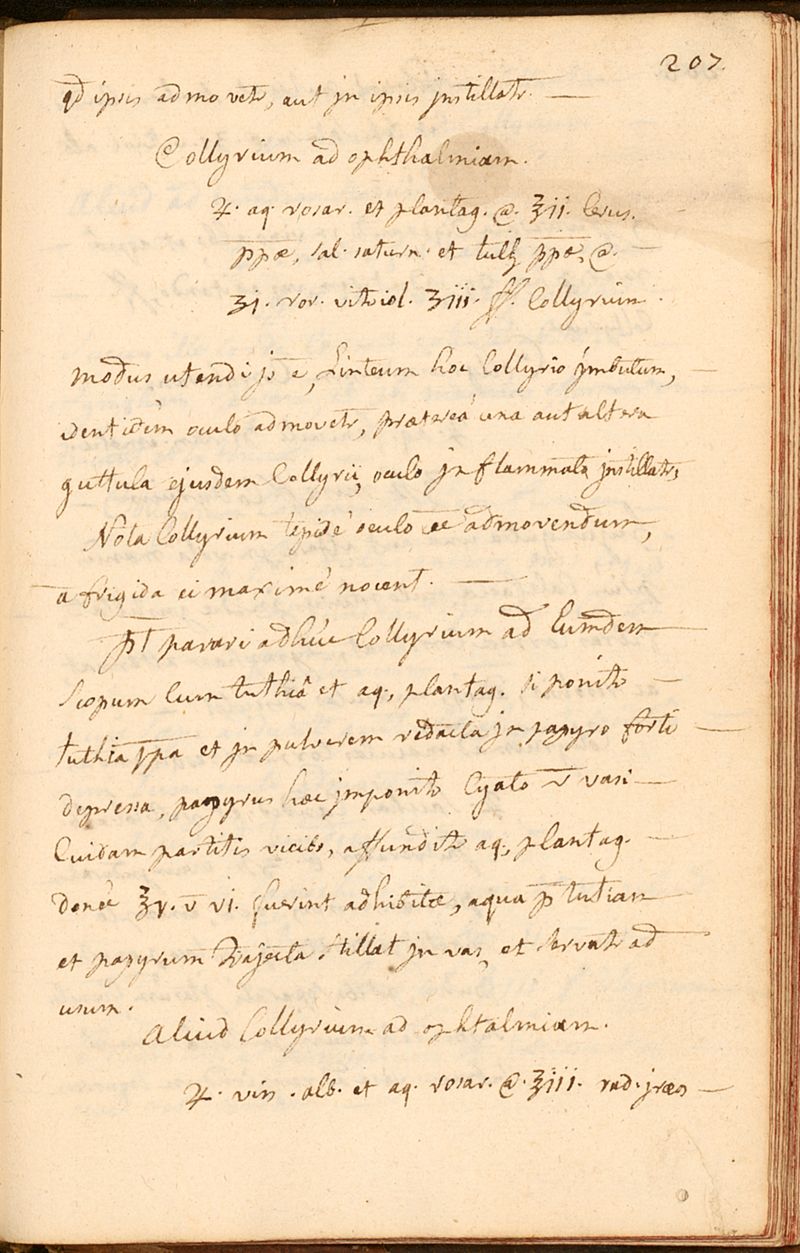 207.
qd ipsis admovetr, aut jn ipsis jnstillatr. —
Collyrium ad ophthalmiam.
♃. aq. rosar. et plantag. @. ʒii. Cerus.
ppæ, sal. saturn. et ppæ, @. —
ʒj. ror. vitriol. ʒiii. ff. Collyrium.
Modus utendi js e, Linteum hoc Collyrio jmbutum, —
identidem oculo admovetr, præterea una aut altera
guttula ejusdem Collyrii, oculo jnflammato jnstillatr,
Nota Collyrium tepidè oculo ee admovendum,
a frigida ei maximè nocent. —
pt parari adhuc Collyrium ad Eumdem —
Scopum Cum tuthiâ et aq, plantag. si ponitr —
tuthia ppa et jn pulverem redacta jn papyro forti —
depressa, papyrus hæc jmponitr Cyato v vasi —
Cuidam partitis vicibs, affunditr aq, plantag. —
donec ʒv. v vi. fuerint adhibitæ, aqua p tutiam —
et papyrum trajecta stillat jn vas, et servatr ad —
usum.
Aliud Collyrium ad ophtalmiam.
♃. vin. alb. et aq. rosar. @. ʒiii. rad. jreos —